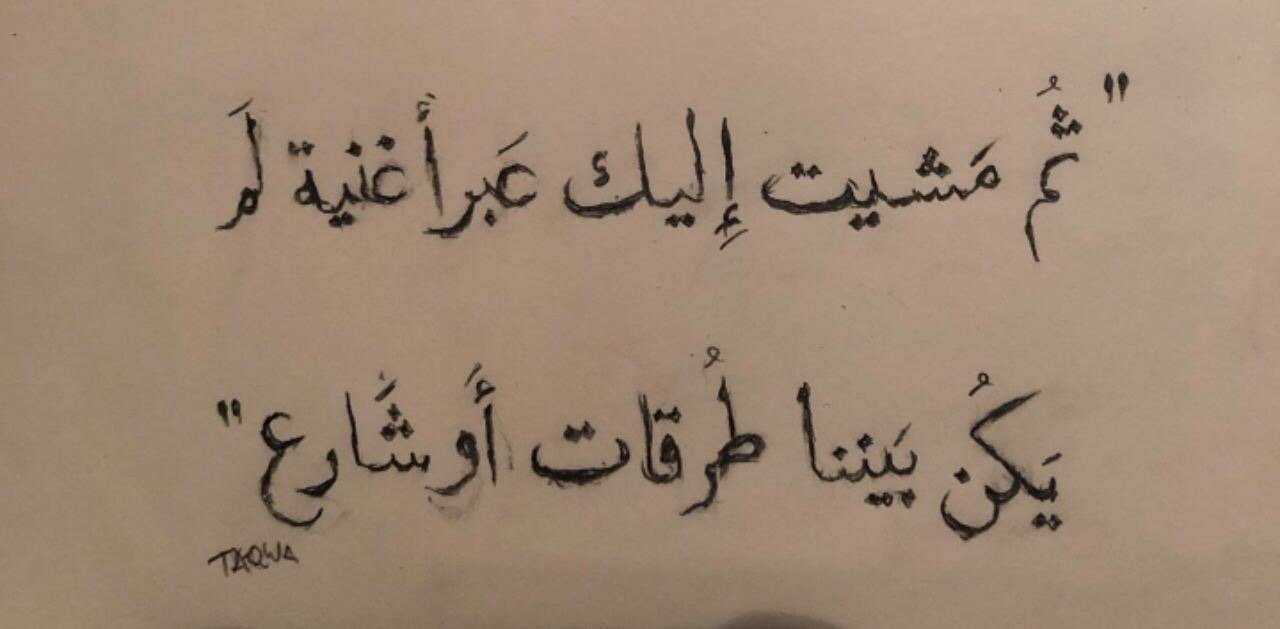 "ثُم مَشيت إِليك عَبر أَغنية لَم
يَكُن بَيننا طُرقات أَو شَارع"
TAQWA